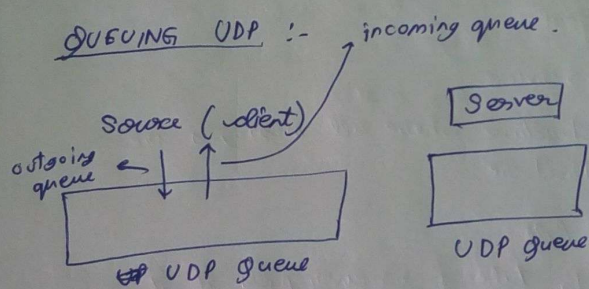 QUEUING UDP :-
incoming queue.
Source (client)
Server
outgoing
queue
UDP queue
UDP queue